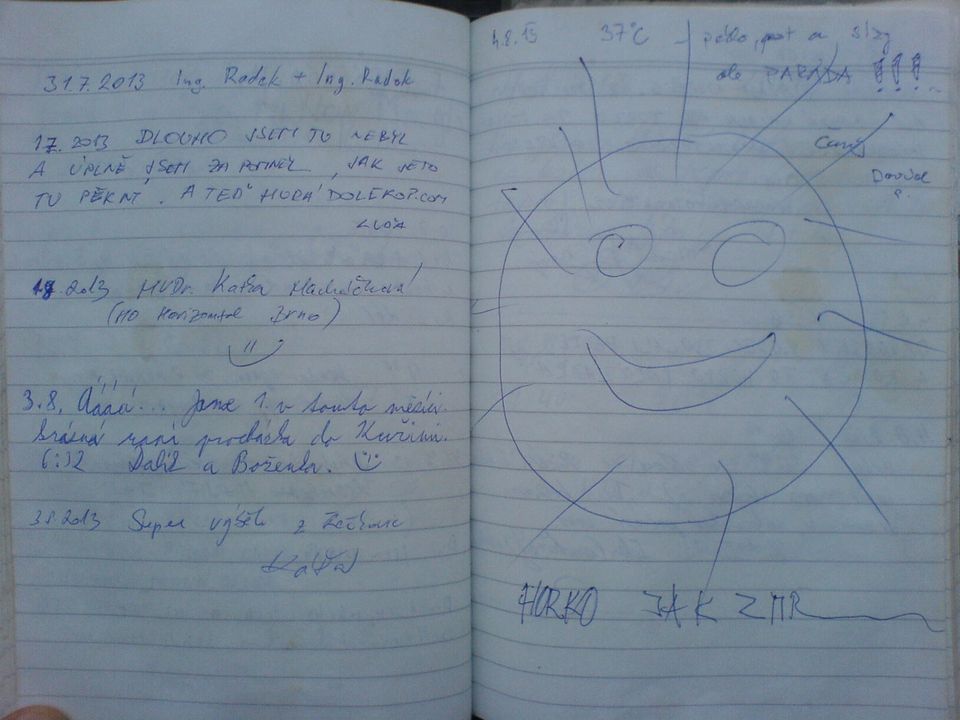 31.7.2013 Ing. Radek + Ing. Radek
1.7. 2013 DLOUHO JSEM TU NEBYL
A ÚPLNĚ JSEM ZAPOMNĚL, JAK JE TO
TU PĚKNÝ. A TEĎ HURÁ DOLE KOPCEM
2013 MVDr. Katka
(MO Horizontal Brno)
3.8. Áááá... Jsme 1. v tomto měsíci.
Krásná ranní procházka do Kuřimi.
6:12 Dalil a Boženka.
3.8.2013 Super z
Káťa
4.8.13 37°C - pot a slzy
ale PARÁDA !!!
HORKO JAK ZMR